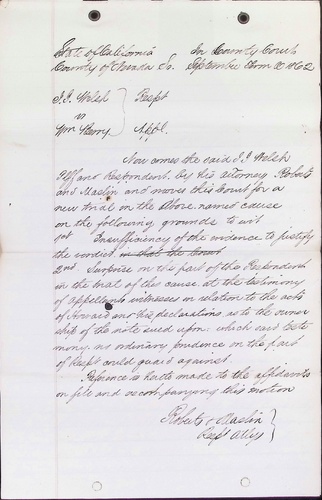 State of California In County Court
County of Nevada Ss. September Term AD 1862
J. J. Welsh Respt
vs
Wm Henry Appl.
Now comes the said J. J. Welsh
Plff and Respondent by his attorneys Roberts
and Maslin and moves this Court for a
new trial on the above named cause
on the following grounds to wit
1st Insufficiency of the evidence to justify
the verdict in that the Court
2nd Surprise on the part of the Respondent
in the trial of this cause at the testimony
of appellants witnesses in relation to the acts
of Howard and his declarations as to the owner
ship of the note sued upon. which said testi
mony no ordinary prudence on the part
of Respt could guard against.
Reference is hereto made to the affidavits
on file and accompanying this motion
Roberts & Maslin
Respt Attys